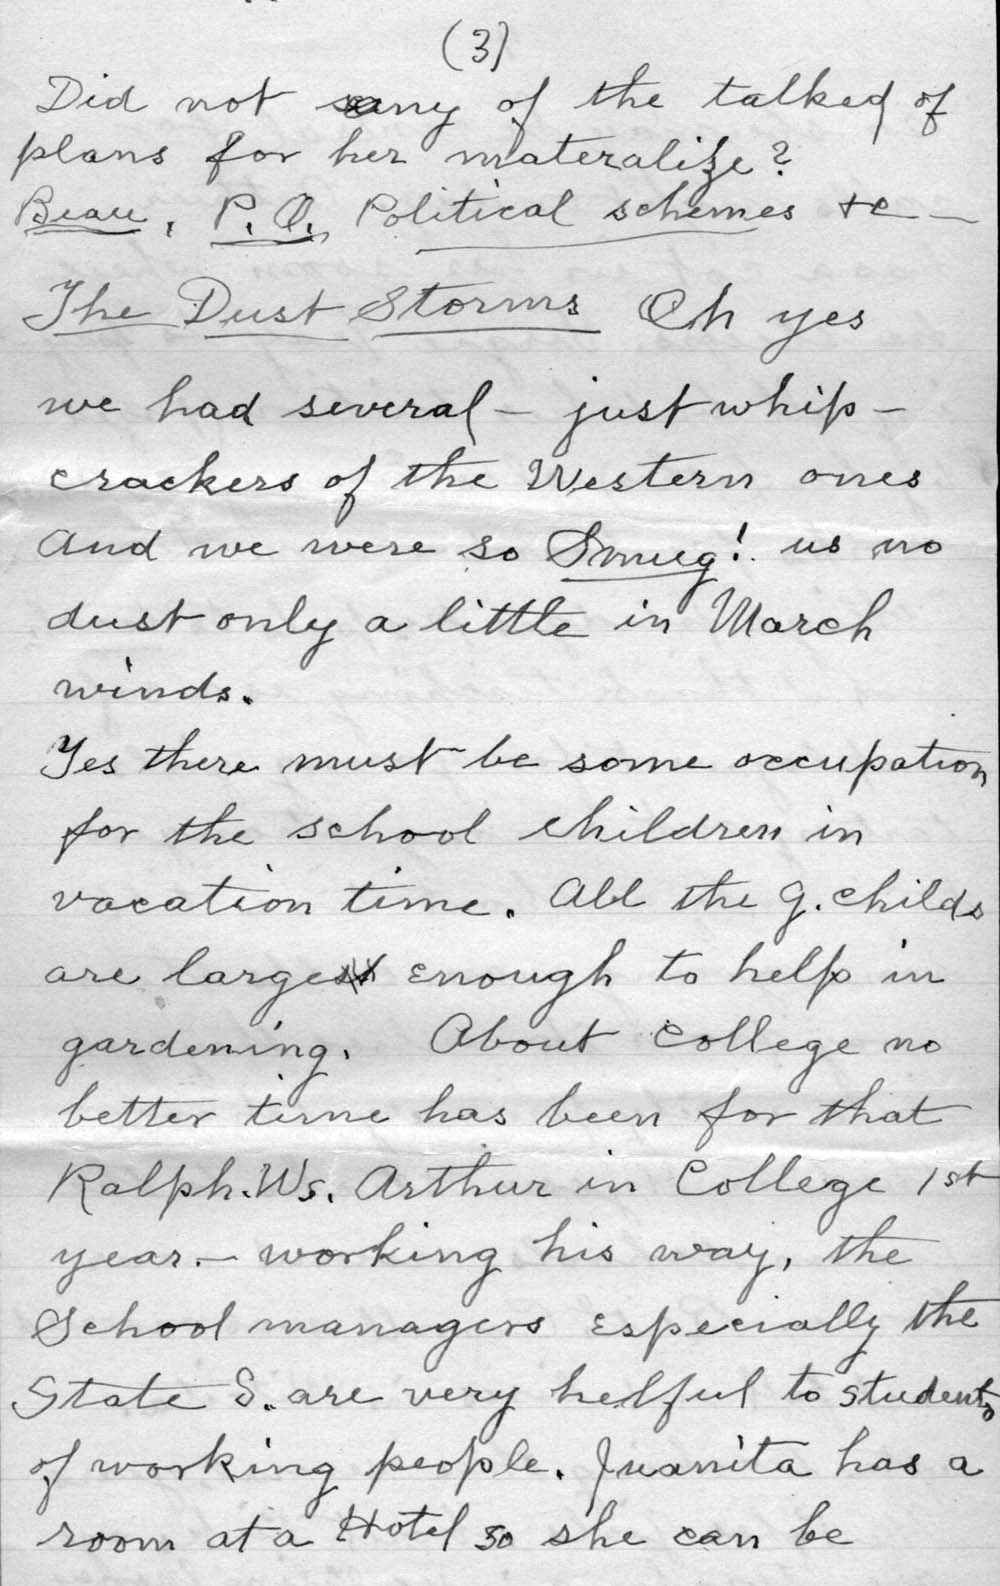 (3)
Did not any of the talked of
plans for her materalize?
Beau, P.O. Political schemes &c —
The Dust Storms Oh yes
we had several – just whip–
crackers of the Western ones
And we were so Smug! us no
dust only a little in March
winds.
Yes there must be some occupation
for the school children in
vacation time. All the g. childs
are large enough to help in
gardening. About College no
better time has been for that
Ralph. Ws. Arthur in College 1st
year. – working his way, the
School managers especially the
State S. are very helful to students
of working people. Juanita has a
room at a Hotel so she can be